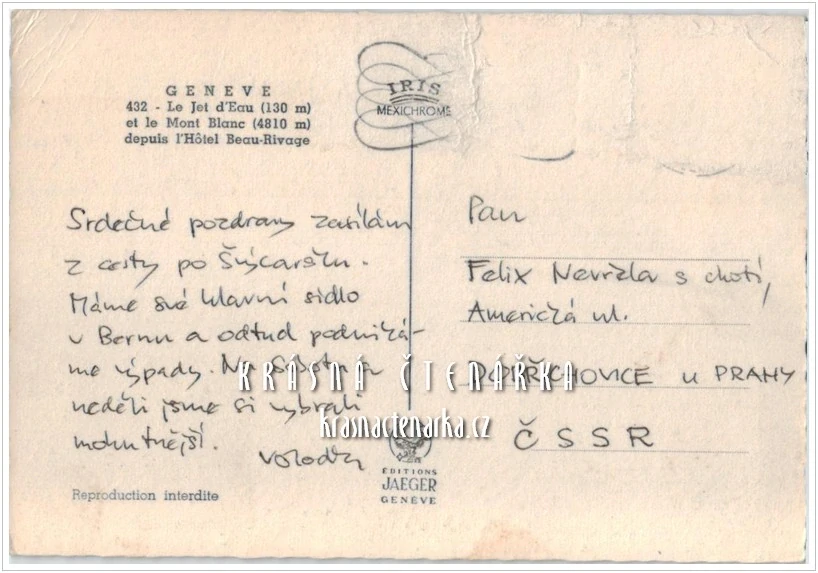 GENEVE
432 - Le Jet d'Eau (130 m)
et le Mont Blanc (4810 m)
depuis l'Hôtel Beau-Rivage
IRIS
MEXICHROME
Srdečné pozdravy zasílám
z cesty po Švýcarsku.
Máme své hlavní sídlo
v Bernu a odtud podniká-
me výpady. Na sobotu a
neděli jsme si vybrali
mohutnější.
Voloďa
Pan
Felix Nevřela s chotí,
Americká ul.
DOBŘICHOVICE u PRAHY
ČSSR
KRÁSNÁ ČTENÁŘKA
krasnactenarka.cz
EDITIONS
JAEGER
GENÈVE
Reproduction interdite